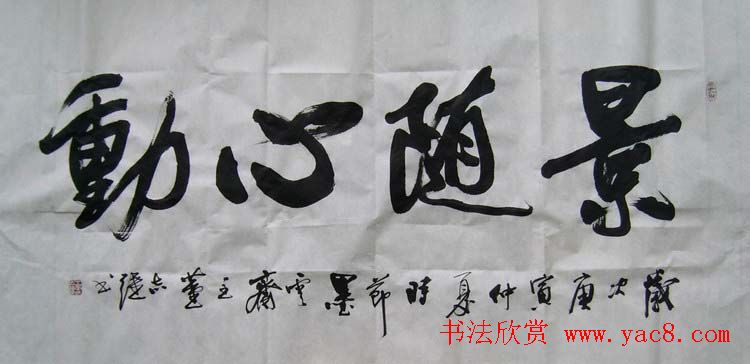 景随心動
歲次庚寅仲夏時節墨雲齋主董志强书
书法欣赏 www.yac8.com